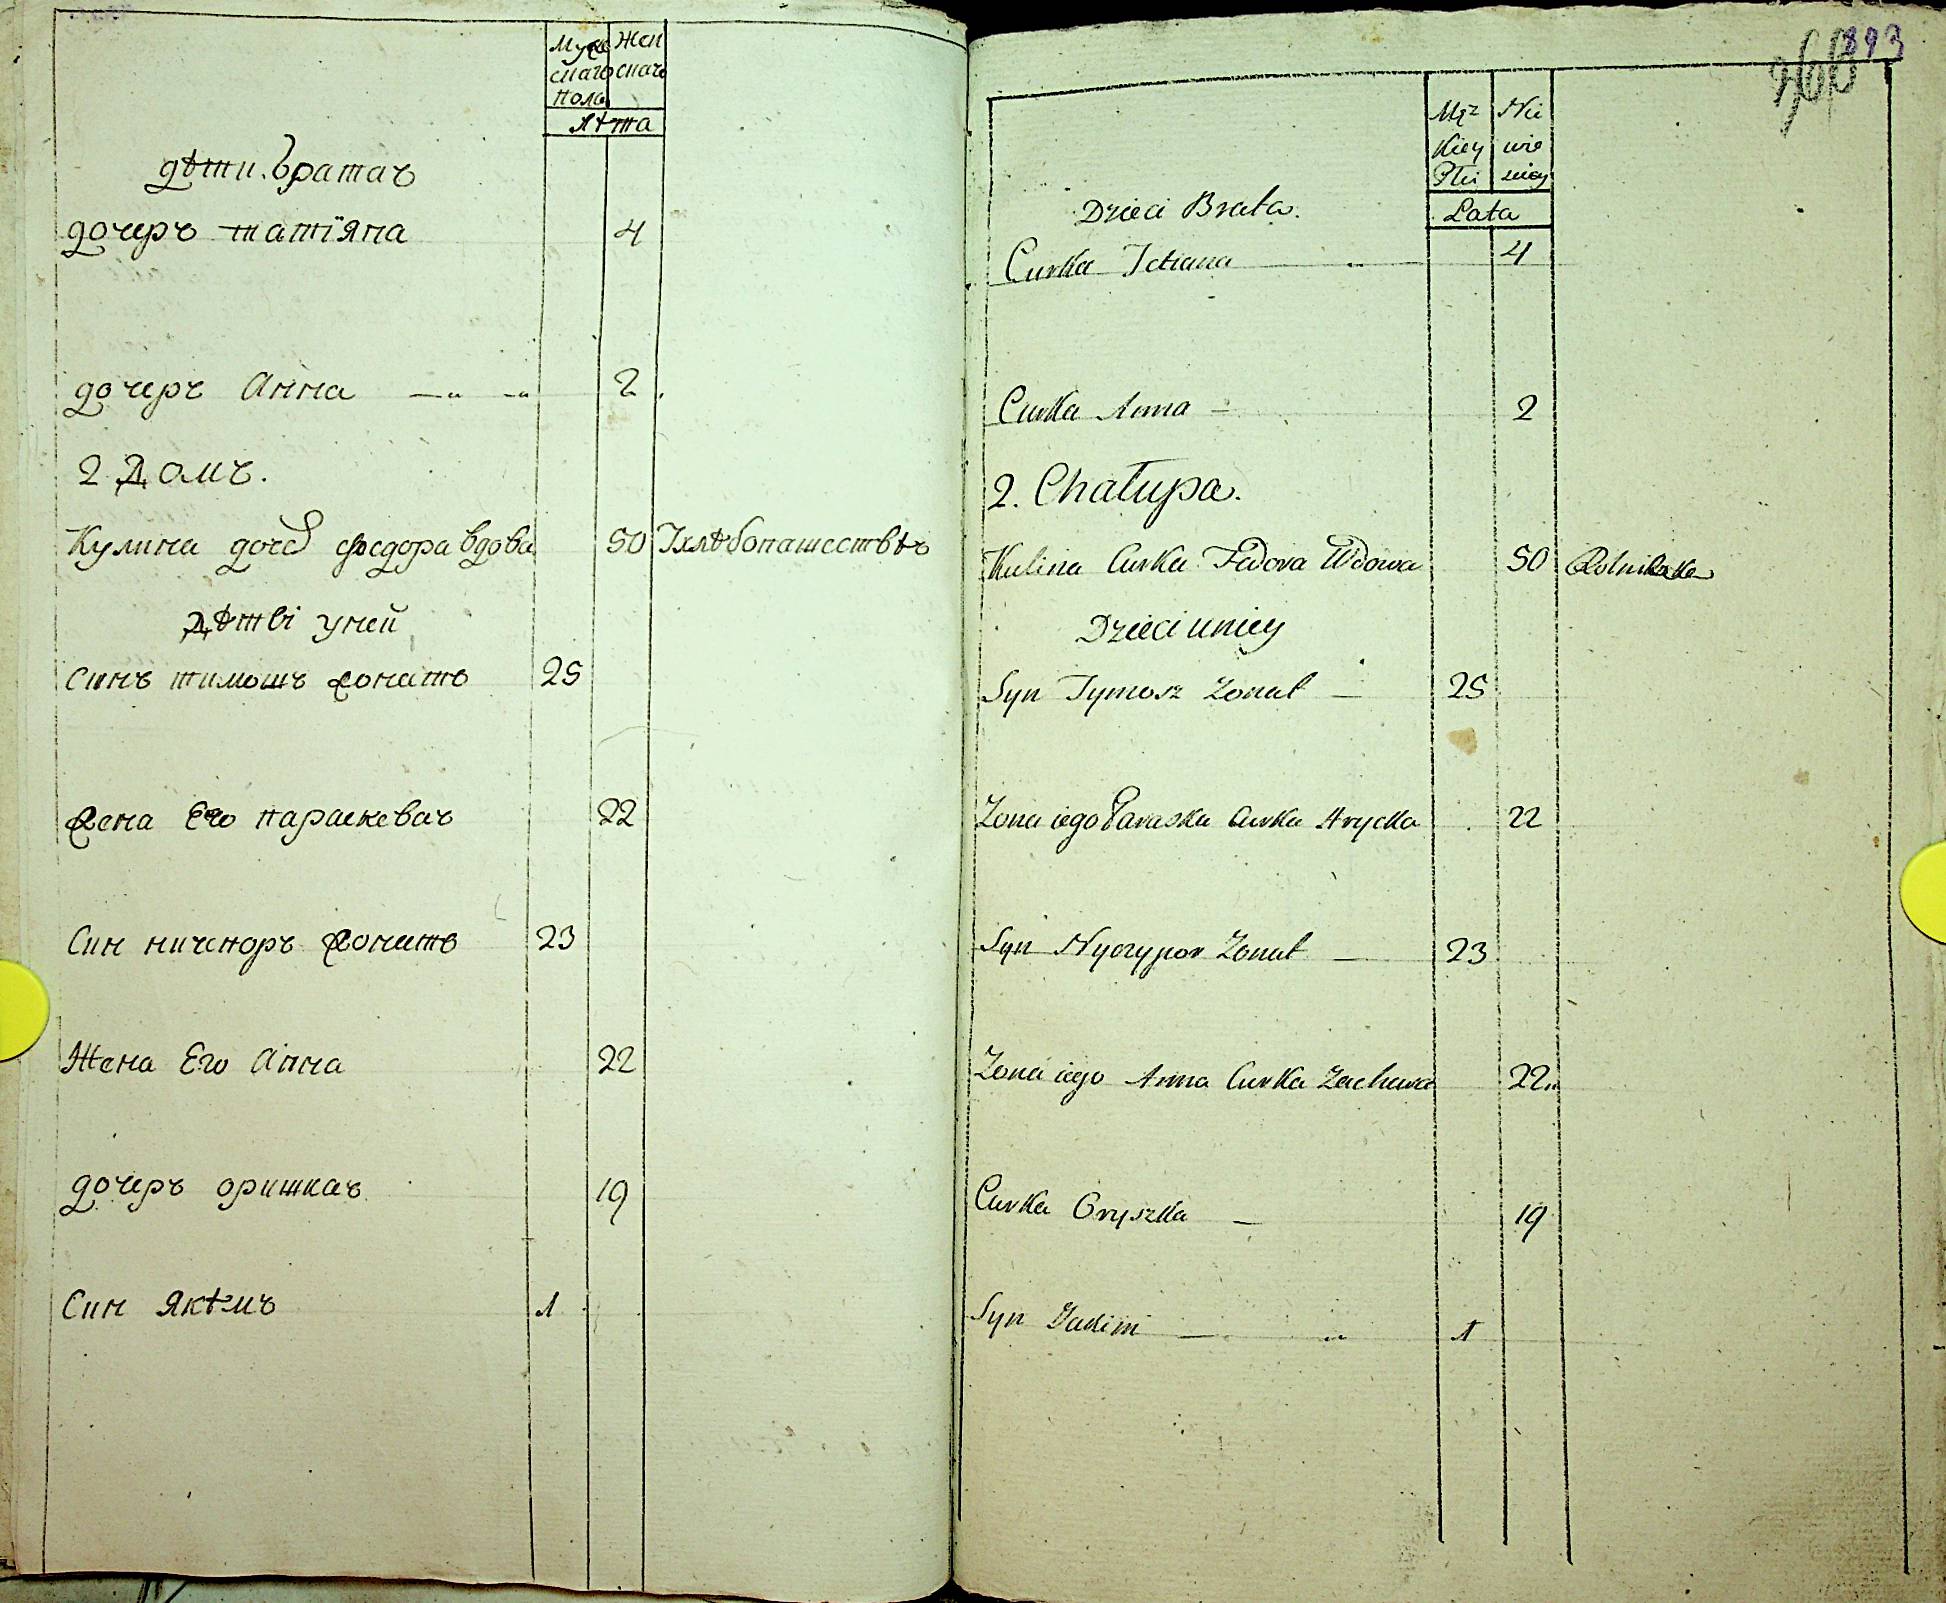 Муже Жен
скаго скаго
пола
лѣта
дѣти братаъ
дочеръ татїяна 4
дочеръ Анна 2
2 Домъ.
Кулина доче федора вдова 50 Ѵхлѣбопашествѣъ
Дѣтві уней
Синъ тимошъ жонатъ 25
жена Его параскеваъ 22
Син ничипоръ жонатъ 23
Жена Его Анна 22
дочеръ оришкаъ 19
Син Якѣмъ 1
893
Męz Nie
kiey wie
Płci sciey
Lata
Dzieci Brata.
Curka Tetiana 4
Curka Anna 2
2. Chałupa.
Kulina Curka Fedora Wdowa 50 Rolniczka
Dzieci uniey
Syn Tymosz Zonat 25
Zona iego Paraska Curka Hrycka 22
Syn Nyczypor Zonat 23
Zona iego Anna Curka Zachara 22
Curka Oryszka 19
Syn Jakim 1